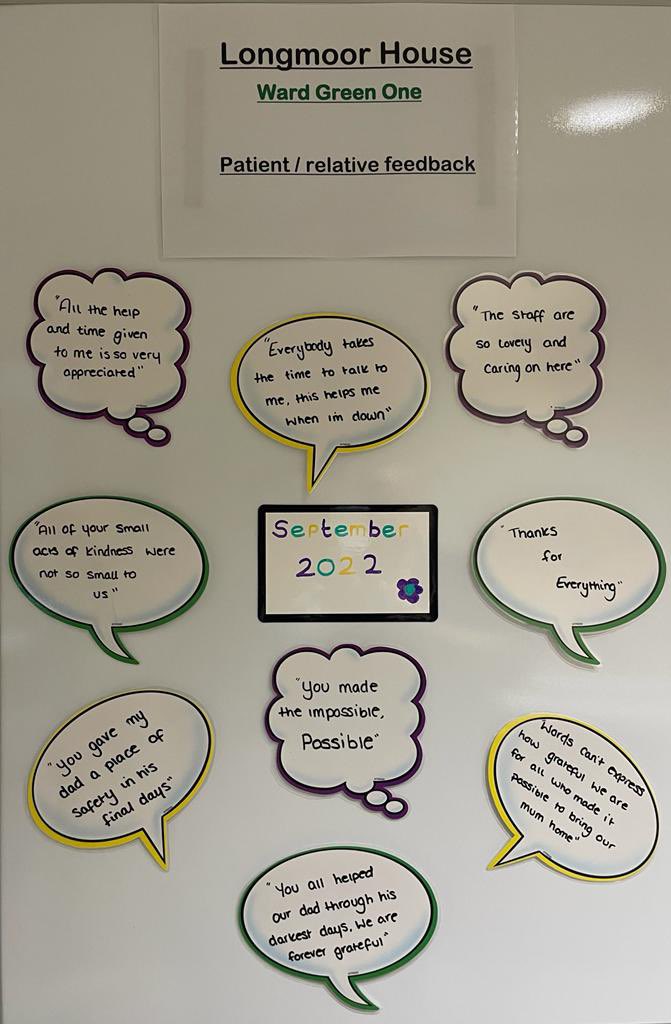 Longmoor House
Ward Green One
Patient / relative feedback
"All the help
and time given
to me is so very
appreciated"
"Everybody takes
the time to talk to
me, this helps me
when im down"
"The staff are
so lovely and
caring on here"
"All of your small
acts of kindness were
not so small to
us"
September
2022
"Thanks
for
Everything"
"You gave my
dad a place of
safety in his
final days"
"You made
the impossible,
Possible"
"Words can't express
how grateful we are
for all who made it
possible to bring our
mum home"
"You all helped
our dad through his
darkest days. We are
forever grateful"